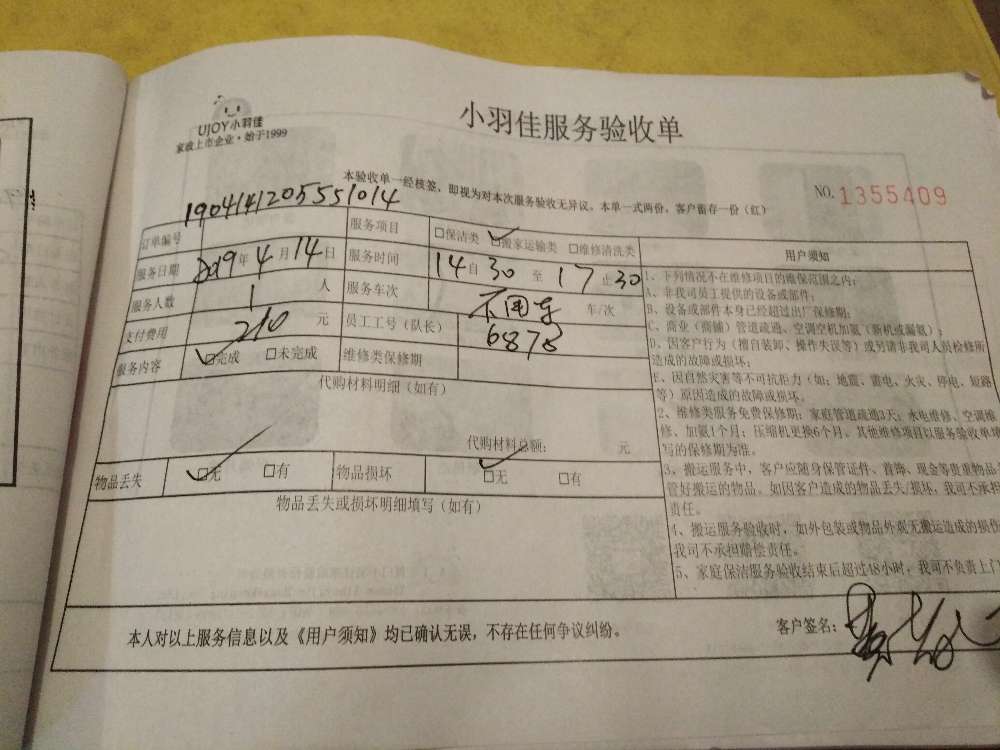 UJOY小羽佳
家政上市企业·始于1999
小羽佳服务验收单
本验收单一经核签，即视为对本次服务验收无异议。本单一式两份，客户留存一份（红）
NO. 1355409
订单编号 1904141205551014 服务项目 □保洁类 ☑搬家运输类 □维修清洗类
服务日期 2019年4月14日 服务时间 14自30至17止30
服务人数 1 人 服务车次 不用车 车/次
支付费用 210 元 员工工号（队长） 6878
服务内容 ☑完成 □未完成 维修类保修期
代购材料明细（如有）
代购材料总额： 元
物品丢失 ☑无 □有 物品损坏 ☑无 □有
物品丢失或损坏明细填写（如有）
用户须知
1、下列情况不在维修项目的维保范围之内：
A、非我司员工提供的设备或部件；
B、设备或部件本身已经超过出厂保修期；
C、商业（商铺）管道疏通、空调空机加氨（新机或漏氨）；
D、因客户行为（擅自装卸、操作失误等）或另请非我司人员检修所
造成的故障或损坏；
E、因自然灾害等不可抗拒力（如：地震、雷电、火灾、停电、短路
等）原因造成的故障或损坏。
2、维修类服务免费保修期：家庭管道疏通3天；水电维修、空调维
修、加氨1个月；压缩机更换6个月。其他维修项目以服务验收单填
写的保修期为准。
3、搬运服务中，客户应随身保管证件、首饰、现金等贵重物品
管好搬运的物品。如因客户造成的物品丢失/损坏，我司不承担
责任。
4、搬运服务验收时，如外包装或物品外观无搬运造成的损伤
我司不承担赔偿责任。
5、家庭保洁服务验收结束后超过48小时，我司不负责上门
本人对以上服务信息以及《用户须知》均已确认无误，不存在任何争议纠纷。
客户签名：